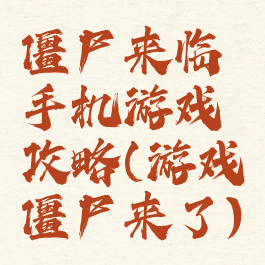 僵尸来临
手机游戏
攻略(游戏
僵尸来了)